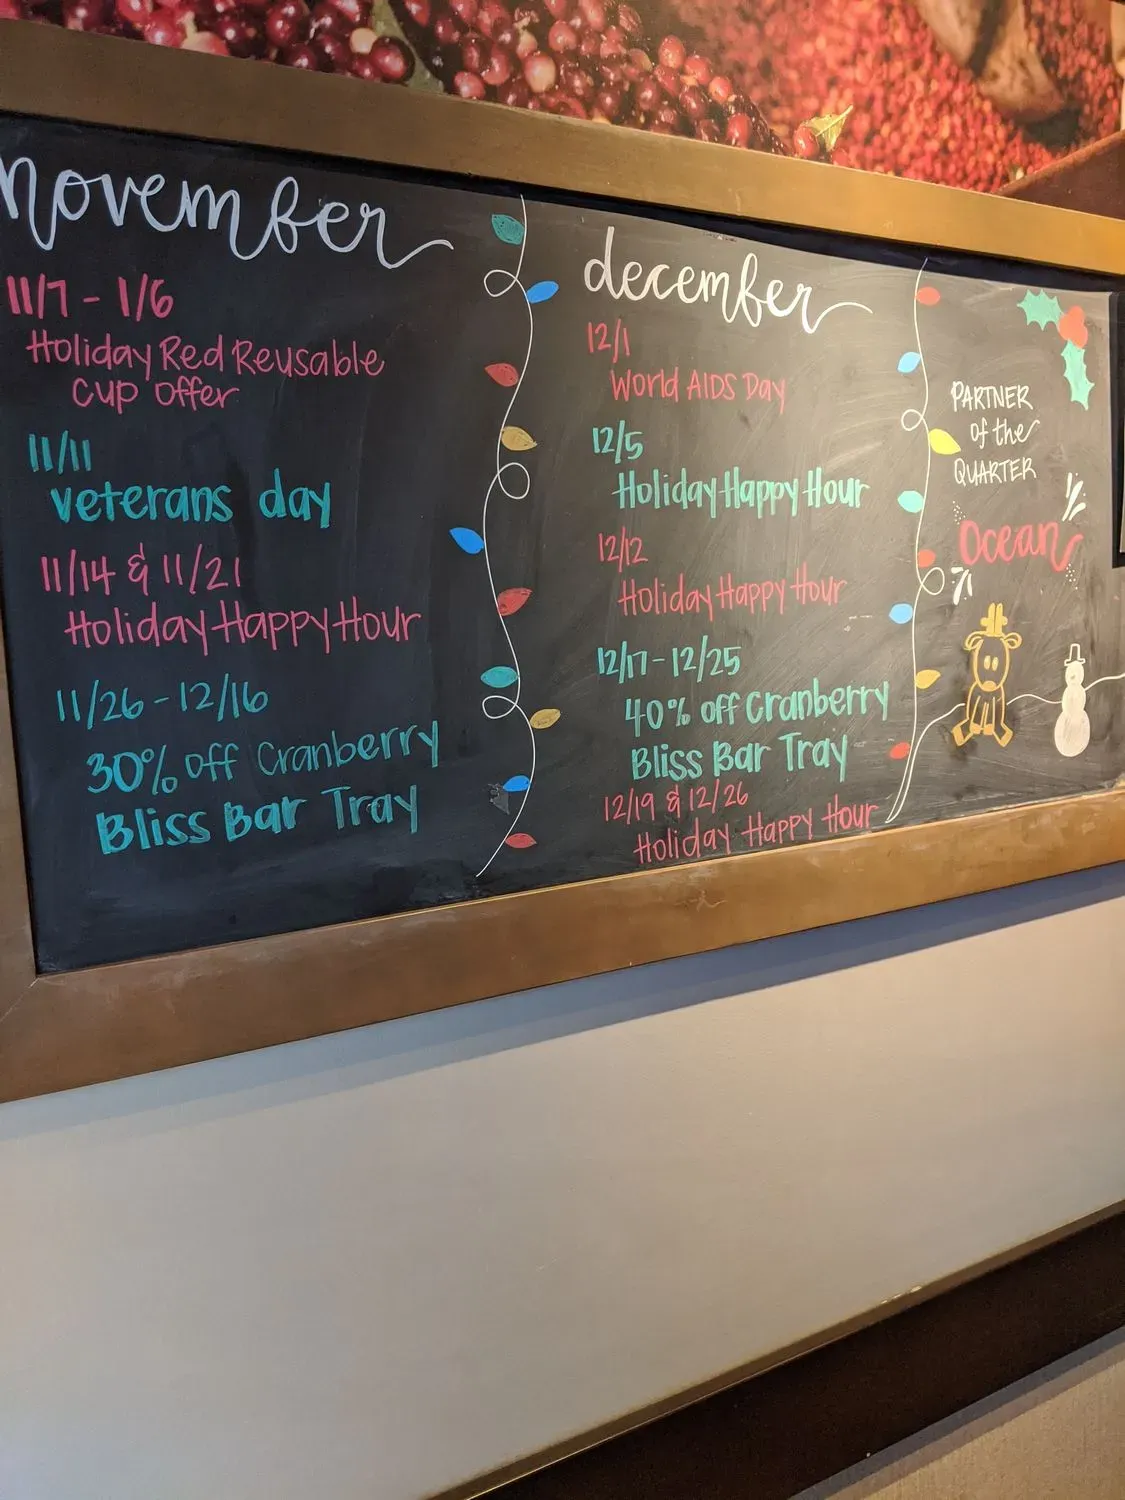 november
11/7 - 1/6
Holiday Red Reusable
Cup Offer
11/11
veterans day
11/14 & 11/21
Holiday Happy Hour
11/26 - 12/16
30% off Cranberry
Bliss Bar Tray
december
12/1
World AIDS Day
12/5
Holiday Happy Hour
12/12
Holiday Happy Hour
12/17 - 12/25
40% off Cranberry
Bliss Bar Tray
12/19 & 12/26
Holiday Happy Hour
PARTNER
of the
QUARTER
Ocean